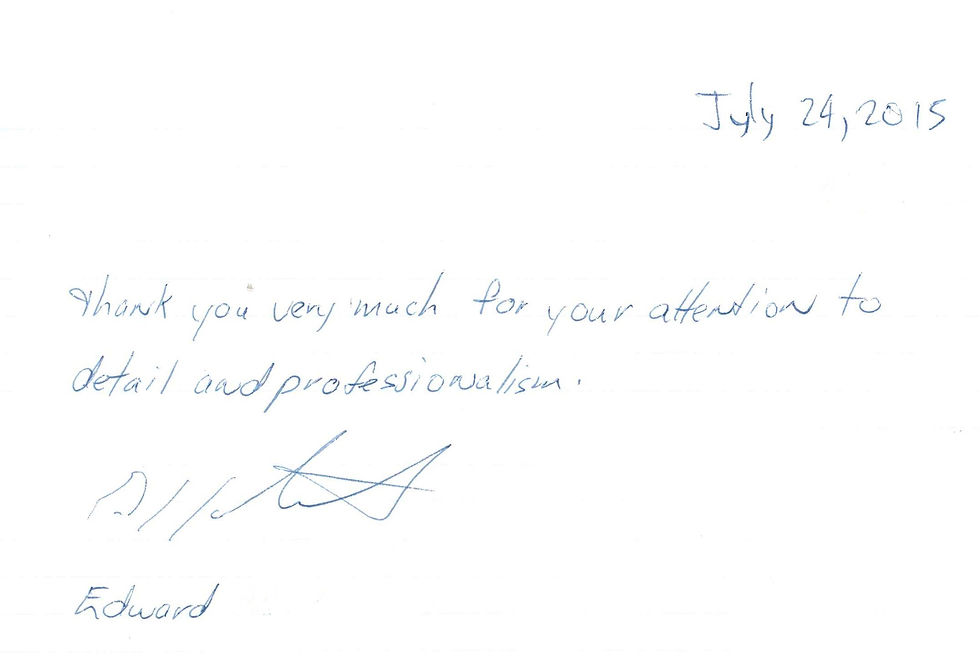 July 24, 2015
Thank you very much for your attention to
detail and professionalism.
Edward